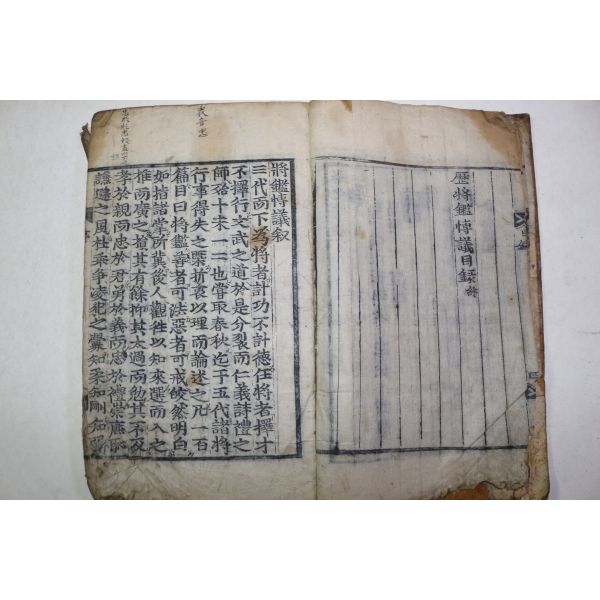 歷將鑑博議目錄終
將鑑博議叙
三代而下爲將者計功不計德任將者擇才
不擇行文武之道於是分裂而仁義詩禮之
師殆十未一二也嘗取春秋迄于五代諸將
行事得失之槩折衷以理而論述之凡一百
篇目曰將鑑善者可法惡者可戒皎然明白
如指諸掌所冀後人觀徃以知來選而入之
推而廣之損其有餘抑其太過而勉其不及
孝於親而忠於君勇於義而忠於禮崇廉耻
謙遜之風杜乘爭凌犯之釁知柔知剛知